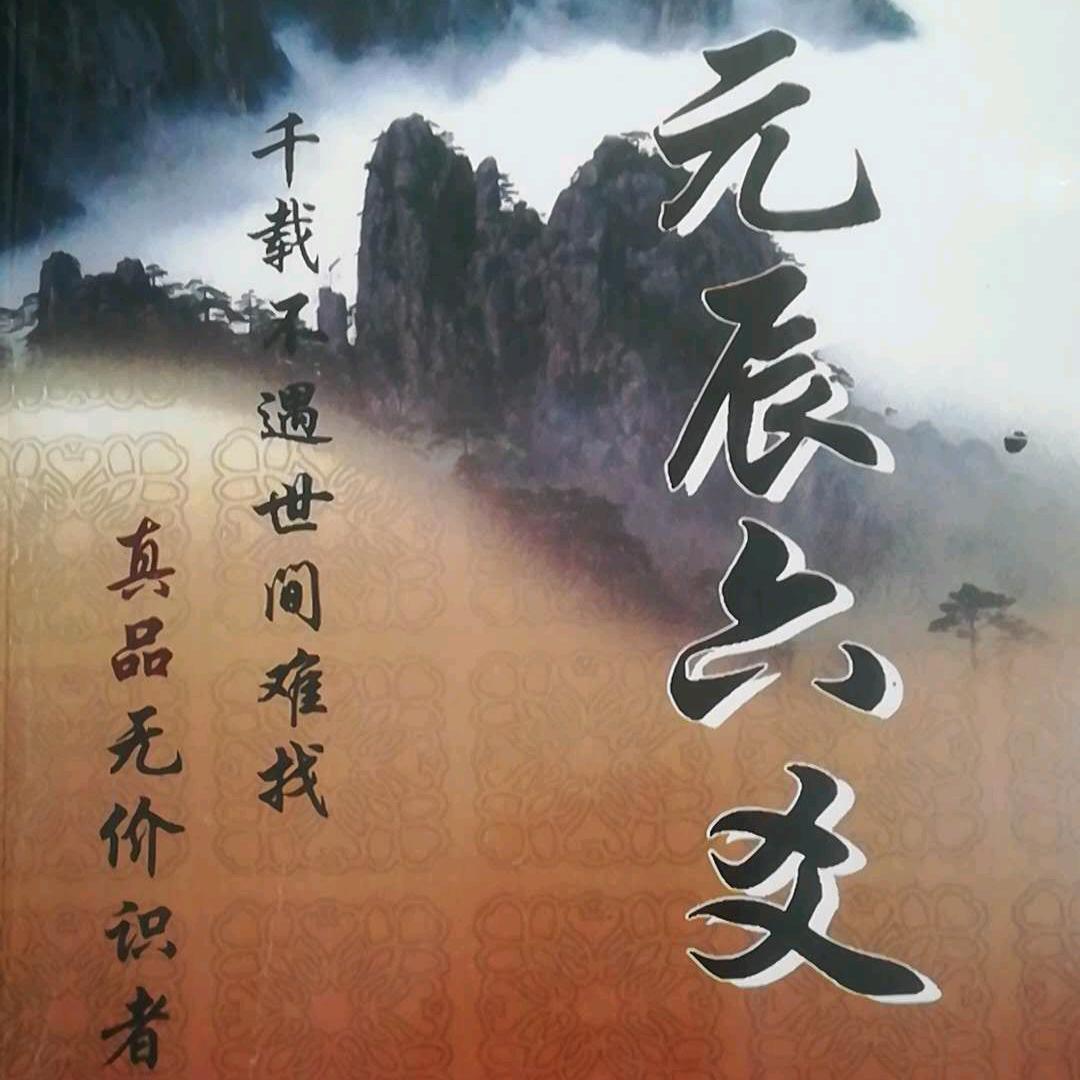 元辰六爻
千载不遇世间难找
真品无价识者